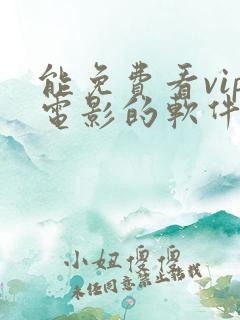 能免費看vip
電影的軟件
小妞儍儍
未任同意禁止转载